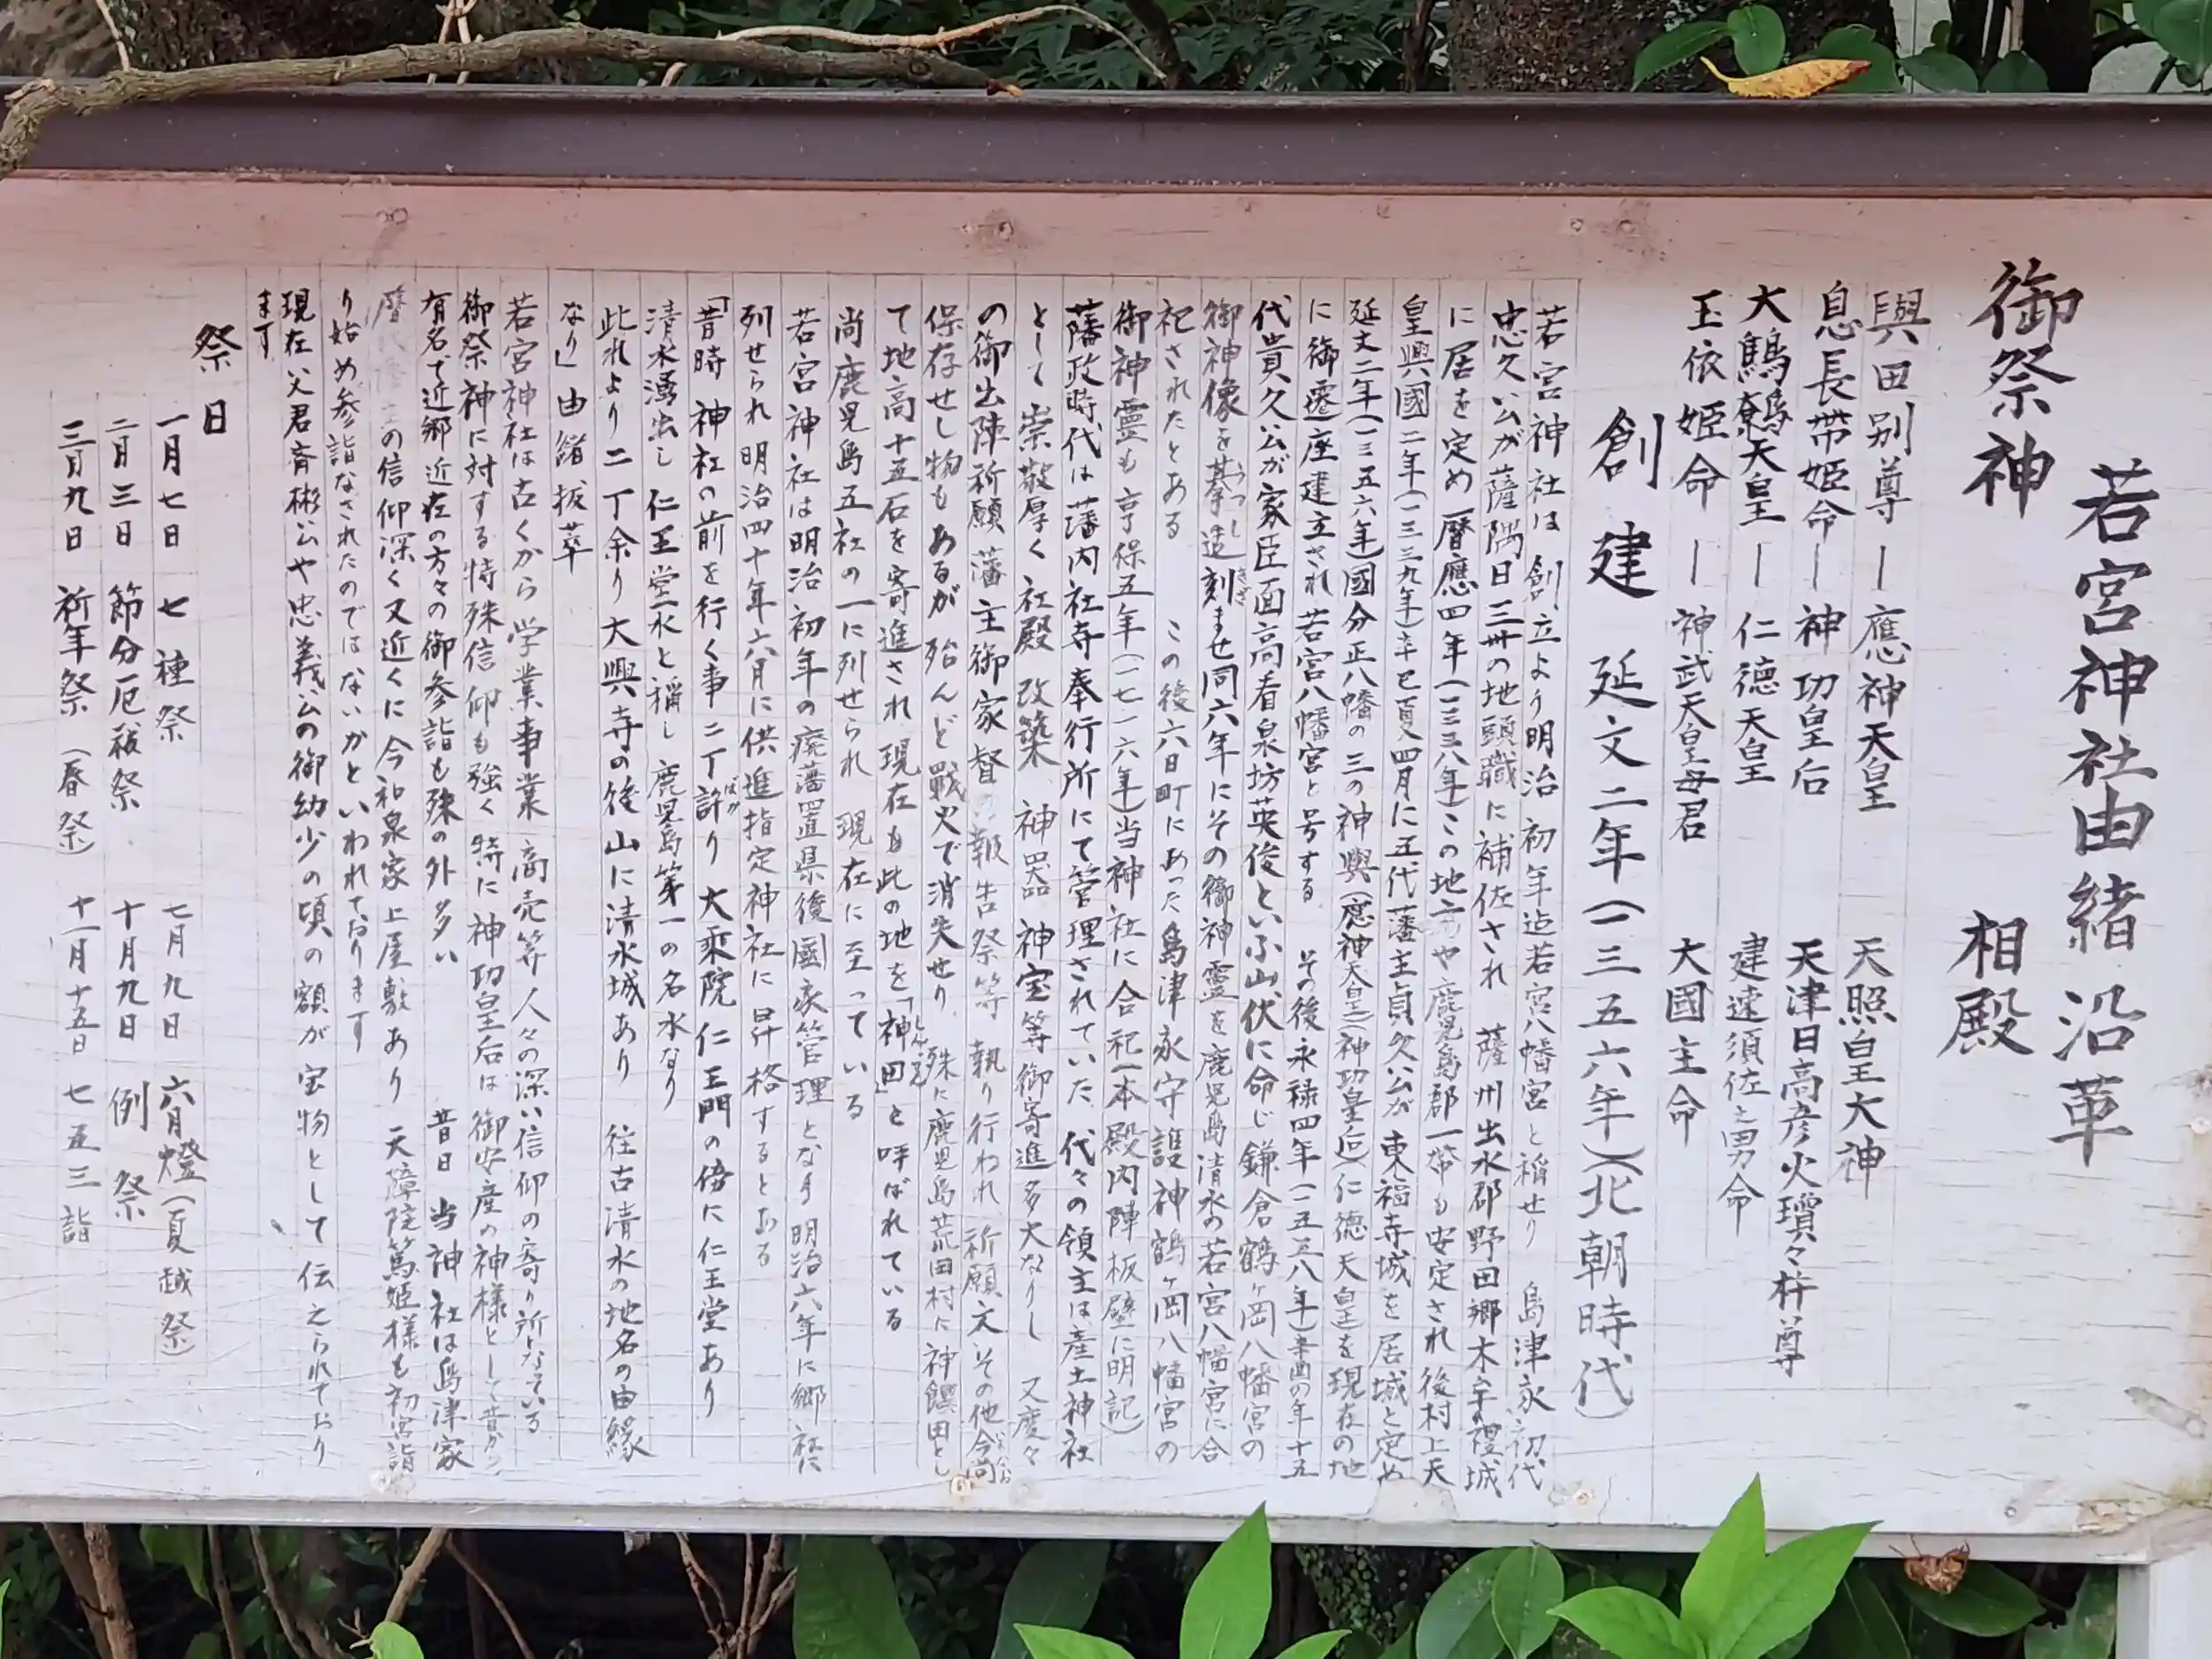 若宮神社由緒沿革
御祭神
相殿
興田別尊 ― 應神天皇 天照皇大神
息長帯姫命 ― 神功皇后 天津日高彦火瓊々杵尊
大鷦鷯天皇 ― 仁徳天皇 建速須佐之男命
玉依姫命 ― 神武天皇母君 大國主命
創建 延文二年(一三五六年)(北朝時代)
若宮神社は創立より明治初年迄若宮八幡宮と稱せり 島津家初代
忠久公が薩隅日三州の地頭職に補佐され 薩州出水郡野田郷木牟禮城
に居を定め暦應四年(一三三八年)この地方や鹿児島郡一帯も安定され後村上天
皇興國二年(一三三九年)辛巳夏四月に五代藩主貞久公が東福寺城を居城と定め
延文二年(一三五六年)國分正八幡の三の神輿(應神天皇)(神功皇后)(仁徳天皇)を現在の地
に御遷座建主され若宮八幡宮と号する その後永禄四年(一五五八年)辛酉の年十五
代貴久公が家臣面高看泉坊英俊という山伏に命じ鎌倉鶴ヶ岡八幡宮の
御神像を摹造刻ませ同六年にその御神霊を鹿児島清水の若宮八幡宮に合
祀されたとある この後六日町にあった島津家守護神鶴ヶ岡八幡宮の
御神霊も享保五年(一七一六年)当神社に合祀(本殿内陣板壁に明記)
藩政時代は藩内社寺奉行所にて管理されていた 代々の領主は産土神社
として崇敬厚く社殿改築 神器 神宝等御寄進多大なりし 又度々
の御出陣祈願 藩主御家督の報告祭等 執り行われ祈願文その他今尚
保存せし物もあるが 殆んど戰火で消失せり 殊に鹿児島荒田村に神饌田とし
て地高十五石を寄進され現在も此の地を「神田」と呼ばれている
尚鹿児島五社の一に列せられ 現在に至っている
若宮神社は明治初年の廃藩置県後國家管理となり 明治六年に郷社に
列せられ明治四十年六月に供進指定神社に昇格するとある
「昔時 神社の前を行く事二丁許り 大乗院仁王門の傍に仁王堂あり
清水湧出し 仁王堂水と稱し 鹿児島第一の名水なり
此れより二丁余り大興寺の後山に清水城あり 往古清水の地名の由縁
なり」由緒抜萃
若宮神社は古くから学業事業 商売等人々の深い信仰の寄り所となっている
御祭神に対する特殊信仰も強く 特に神功皇后は御安産の神様として昔から
有名で近郷近在の方々の御参詣も殊の外多い 昔日 当神社は島津家
の信仰深く又近くに今和泉家上屋敷あり 天障院篤姫様も初宮詣
り始め参詣なされたのではないかといわれております
現在父君斉彬公や忠義公の御幼少の頃の額が宝物として伝えられており
ます
祭日
一月七日 七種祭 七月九日 六月燈(夏越祭)
二月三日 節分厄祓祭 十月九日 例祭
三月九日 祈年祭(春祭) 十一月十五日 七五三詣